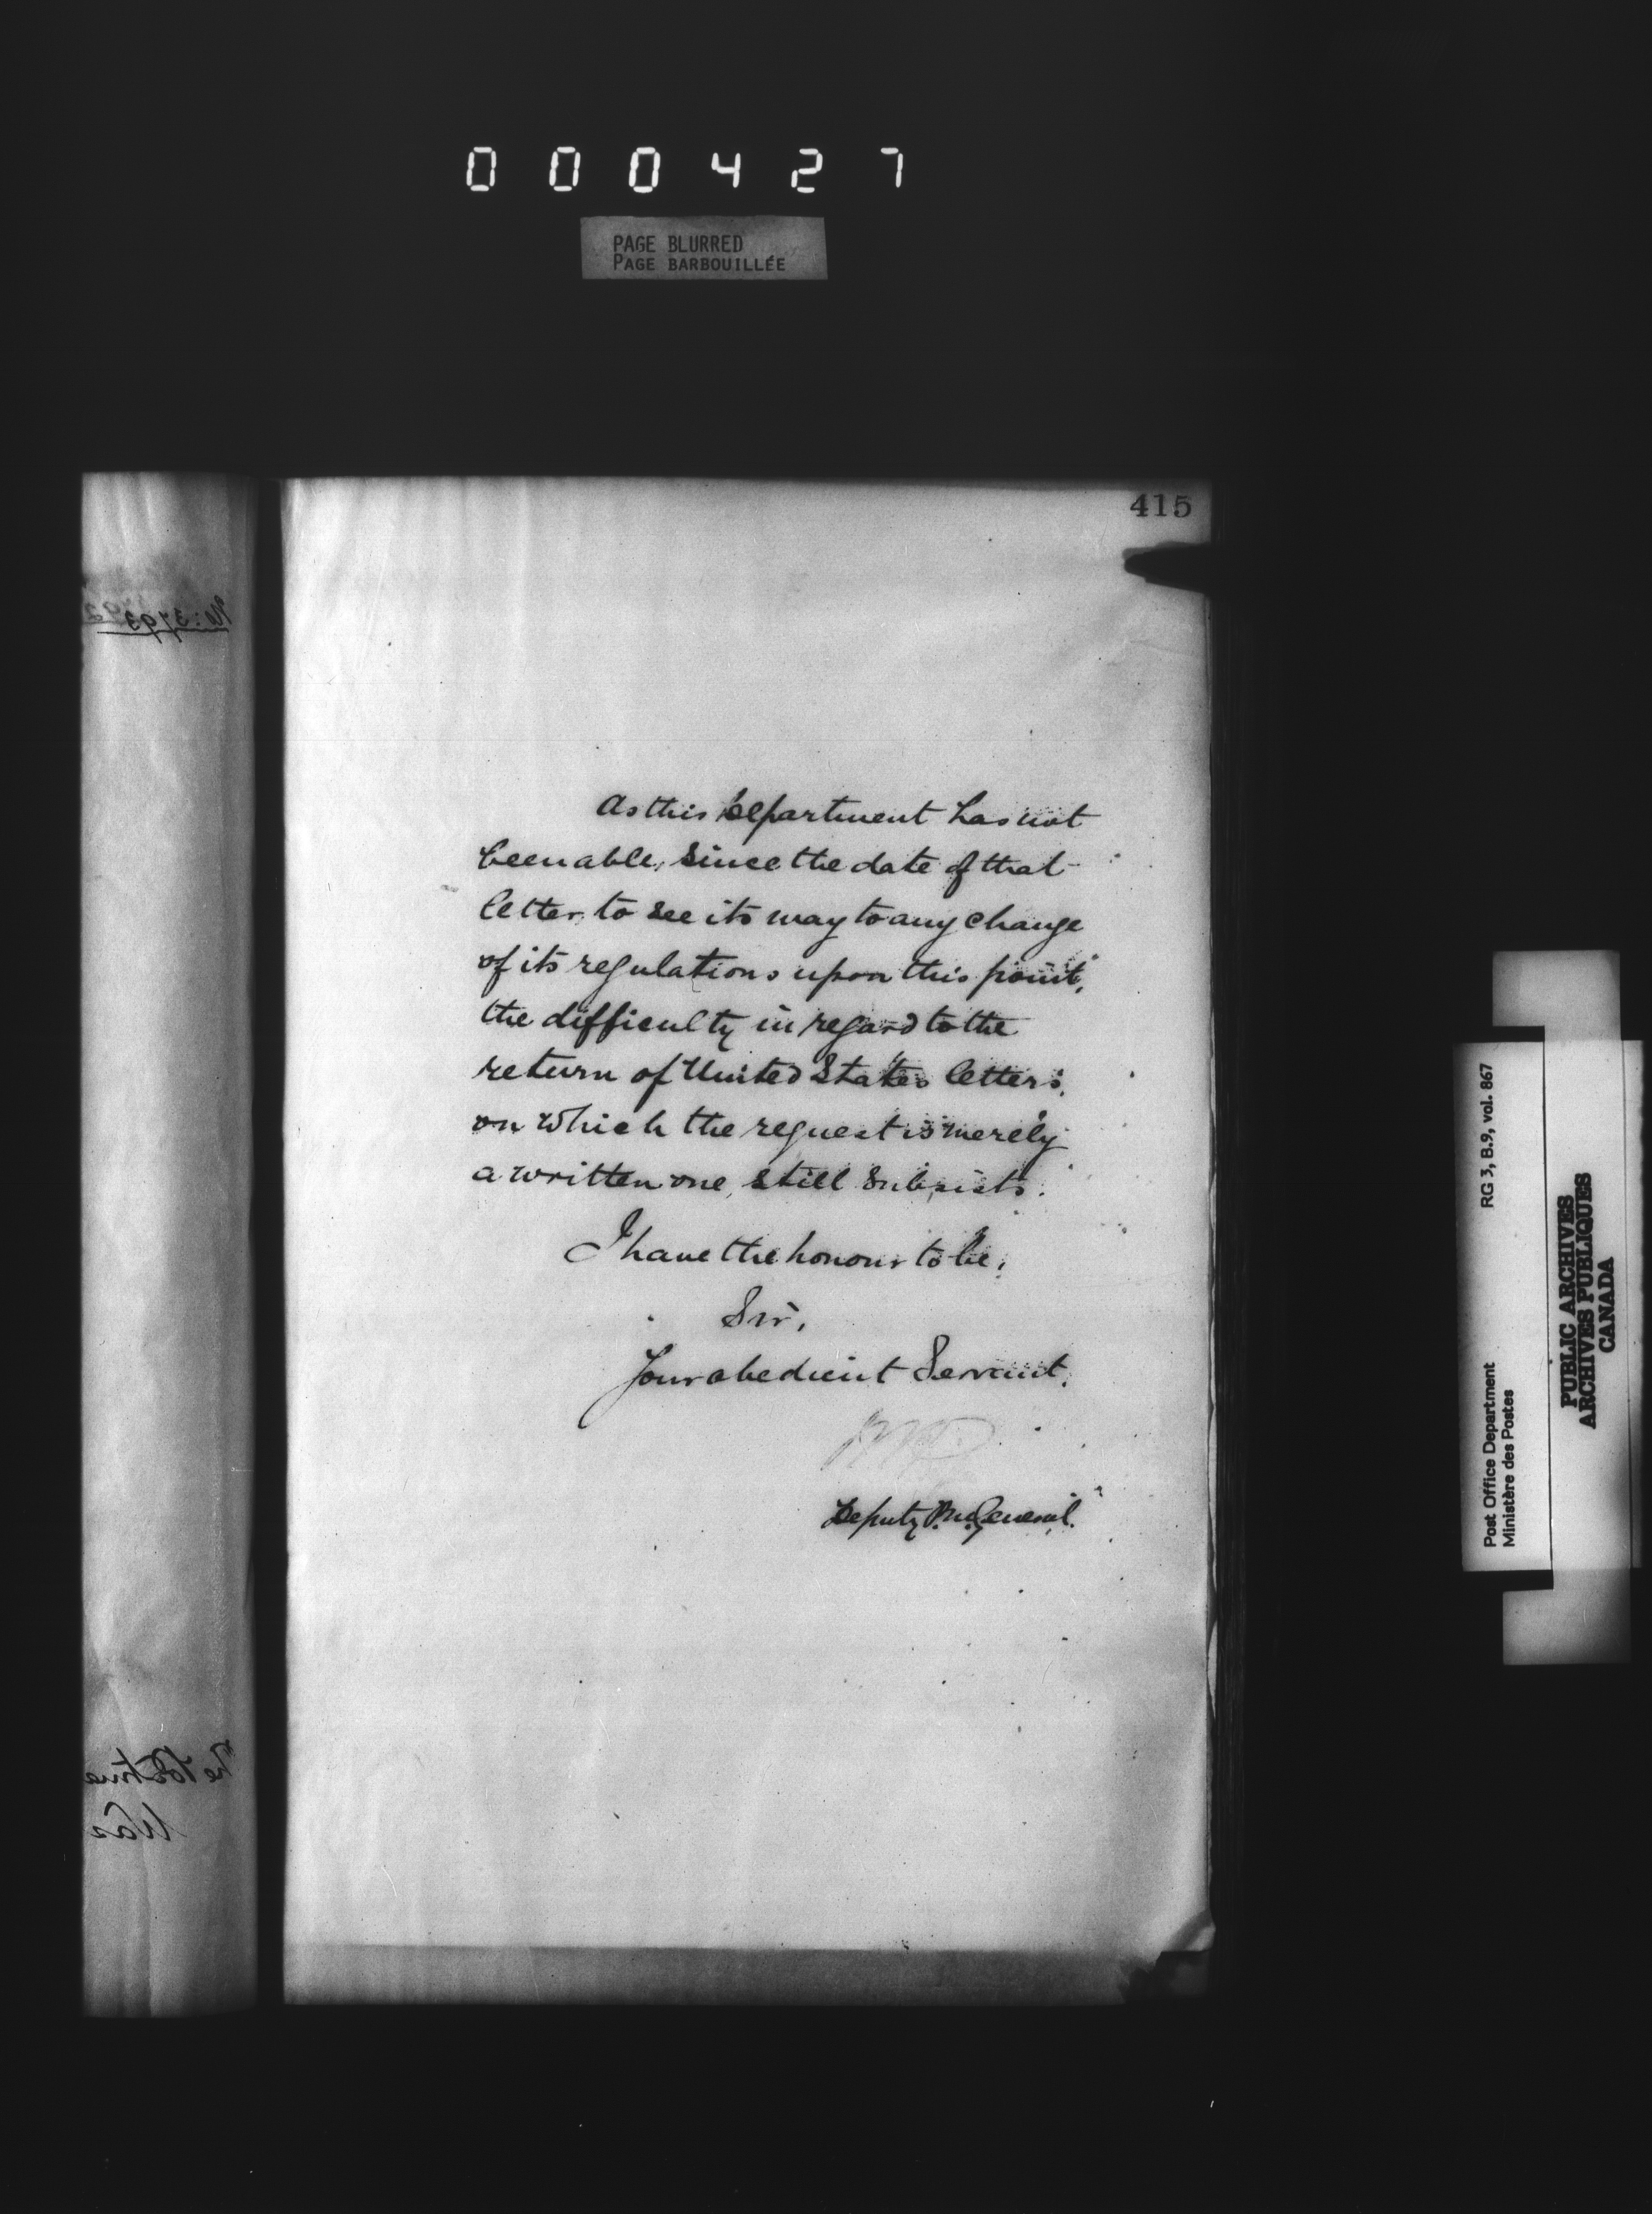 000427
PAGE BLURRED
PAGE BARBOUILLÉE
415
No: 3793
As this Department has not
been able, since the date of that
letter, to see its way to any change
of its regulations upon this point,
the difficulty in regard to the
return of United States letters,
on which the request is merely
a written one, still subsists.
I have the honour to be,
Sir,
Your obedient Servant,
Deputy P.M. General.
Post Office Department
Ministère des Postes
RG 3, B.9, vol. 867
PUBLIC ARCHIVES
ARCHIVES PUBLIQUES
CANADA